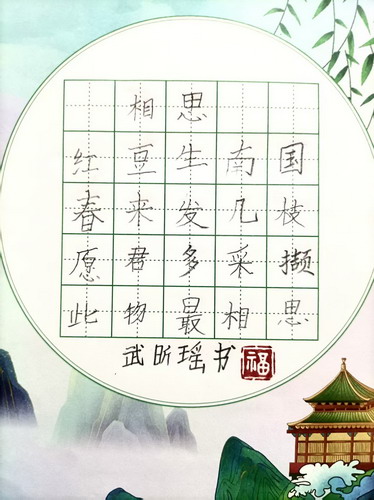 相思
红豆生南国
春来发几枝
愿君多采撷
此物最相思
武昕瑶书 福